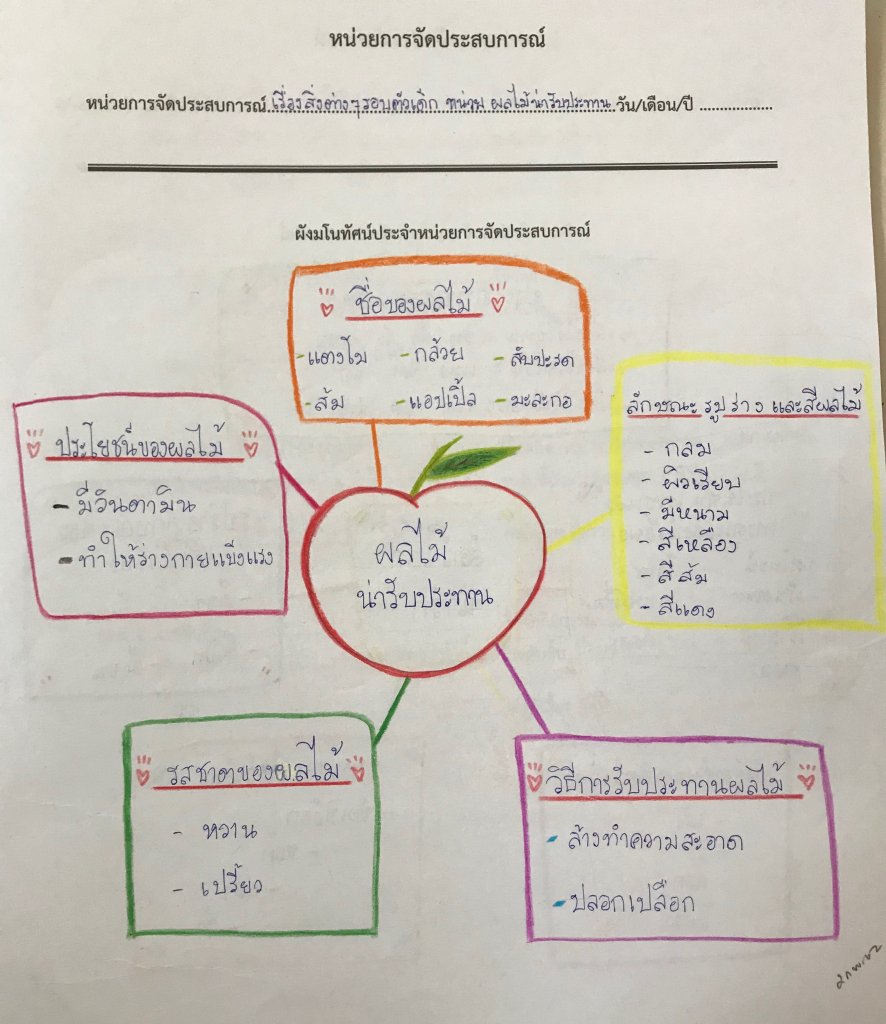 หน่วยการจัดประสบการณ์
หน่วยการจัดประสบการณ์ เรื่องสิ่งต่างๆรอบตัวเด็ก หน่วย ผลไม้น่ารับประทาน วัน/เดือน/ปี ..................
ผังมโนทัศน์ประจำหน่วยการจัดประสบการณ์
ชื่อของผลไม้
- แตงโม - กล้วย - สับปะรด
- ส้ม - แอปเปิ้ล - มะละกอ
ลักษณะ รูปร่าง และสีผลไม้
- กลม
- ผิวเรียบ
- มีหนาม
- สีเหลือง
- สีส้ม
- สีแดง
ประโยชน์ของผลไม้
- มีวินตามิน
- ทำให้ร่างกายแข็งแรง
ผลไม้
น่ารับประทาน
รสชาตของผลไม้
- หวาน
- เปรี้ยว
วิธีการรับประทานผลไม้
- ล้างทำความสะอาด
- ปลอกเปลือก